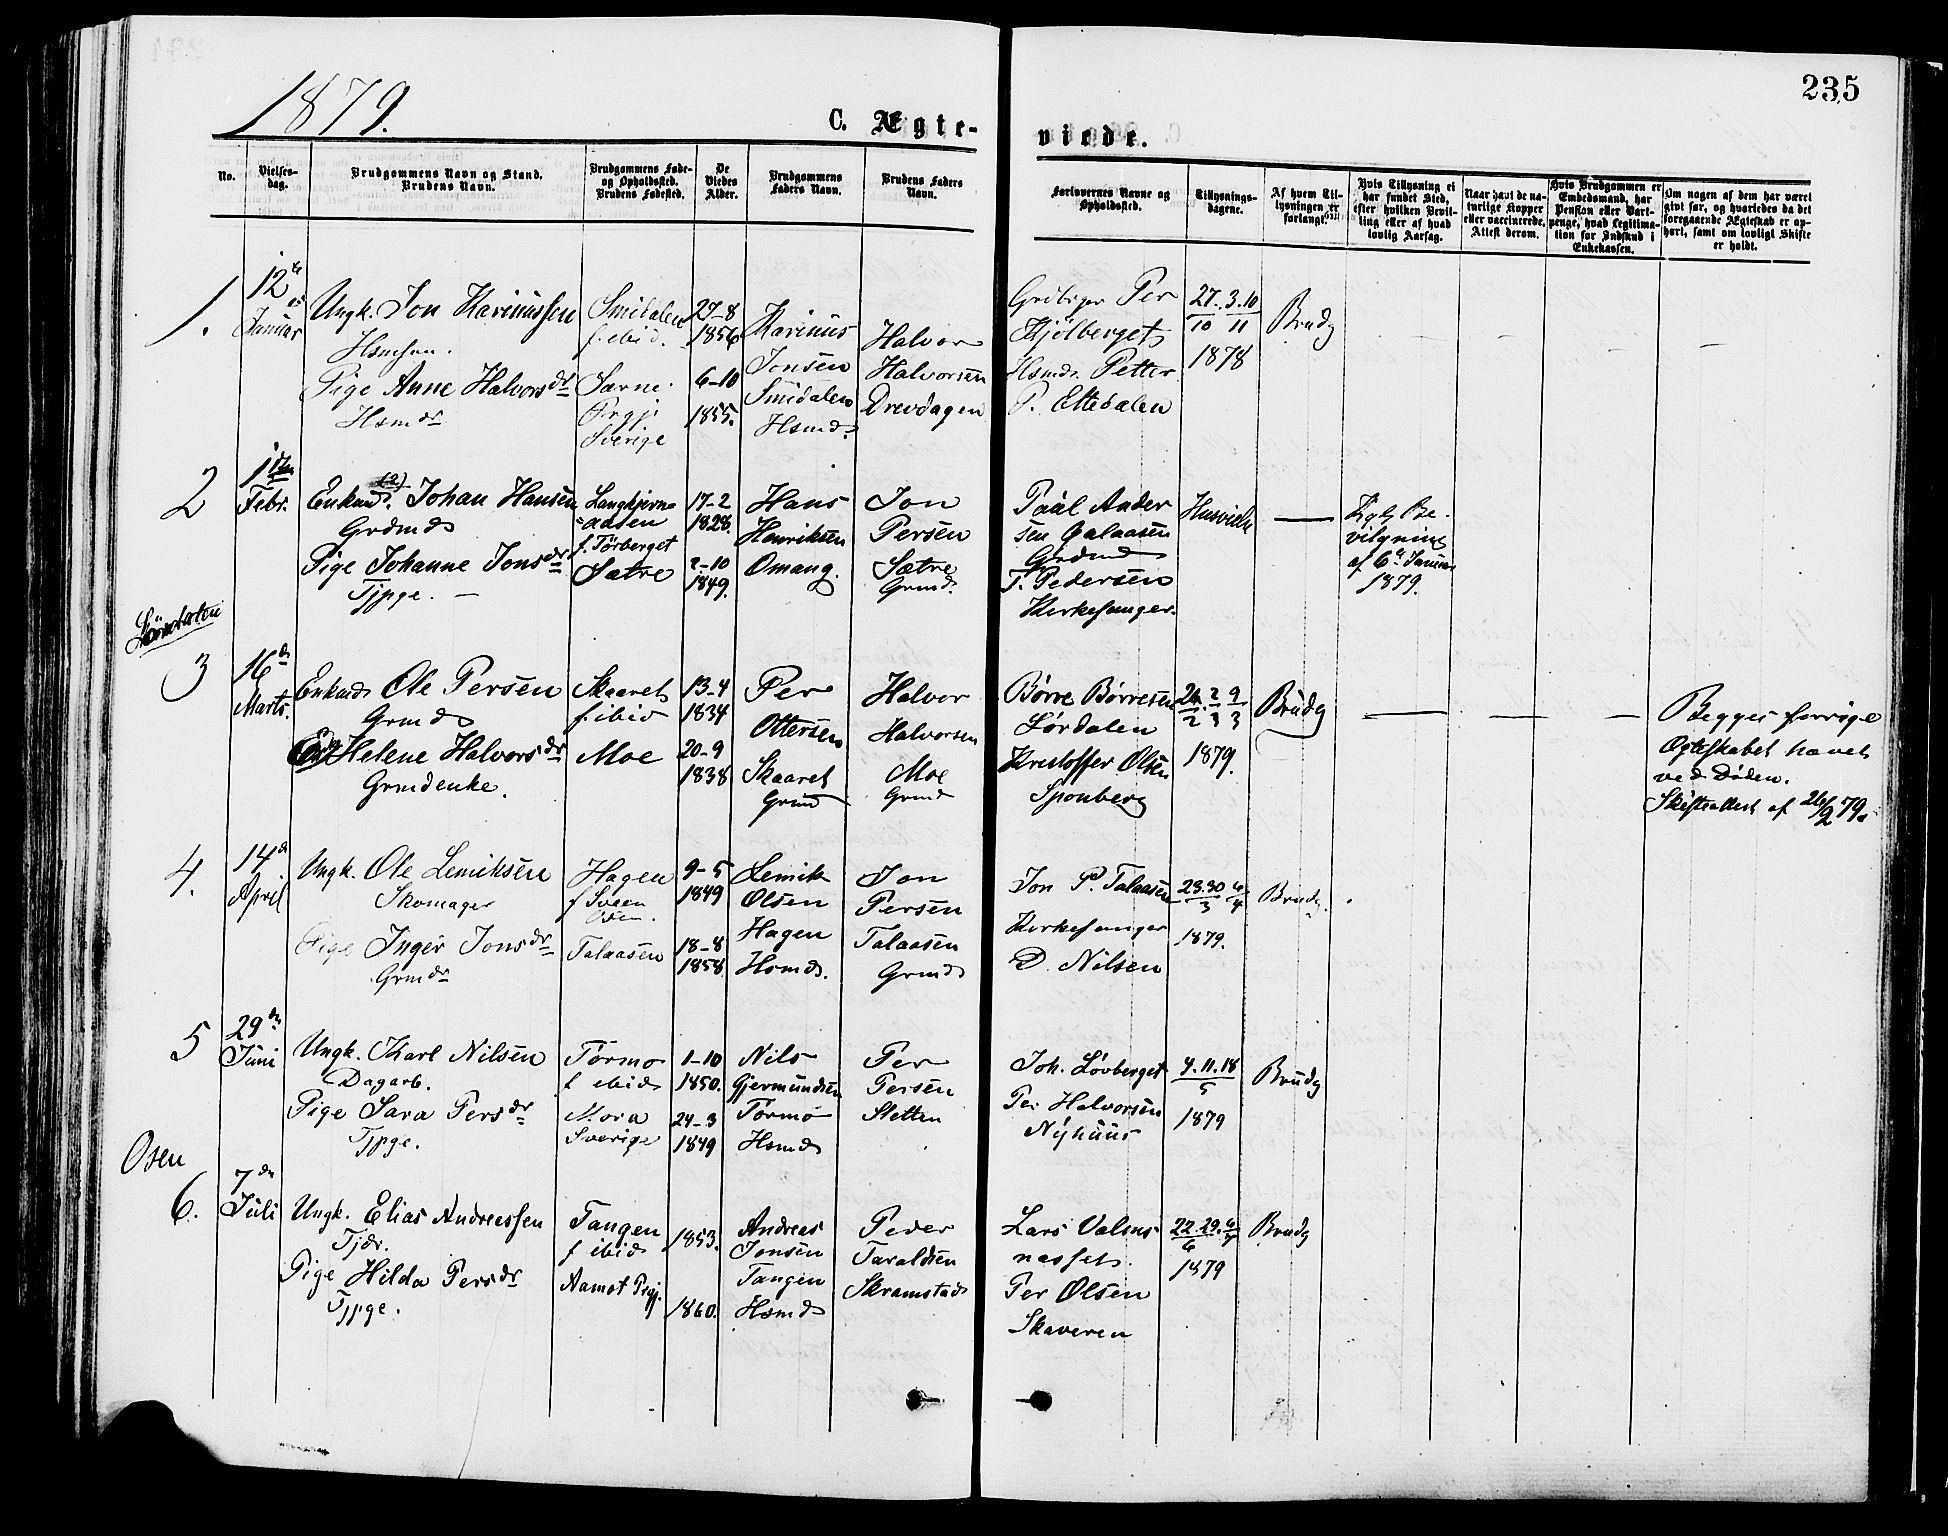 235
1879.
C. Ægte-
viede.
No.
Vielses-
dag.
Brudgommens Navn og Stand.
Brudens Navn.
Brudgommens Føde-
og Opholdssted.
Brudens Fødested.
De
Viedes
Alder.
Brudgommens
Faders Navn.
Brudens Faders
Navn.
Forlovernes Navne og
Opholdssted.
Tillysnings-
dagene.
Af hvem Til-
lysningen er
forlangt.
Hvis Tillysning ei
har fundet Sted,
efter hvilken Bevil-
ling eller af hvad
lovlig Aarsag.
Naar havt de na-
turlige Kopper
eller vaccinerede.
Attest derom.
Hvis Brudgommen er
Embedsmand, har
Pension eller Vart-
penge, hvad Legitima-
tion for Indskud i
Enkekassen.
Om nogen af dem har været
givt før, og hvorledes da det
foregaaende Ægteskab er op-
hørt, samt om lovligt Skifte
er holdt.
1.
12te
Januar
Ungk. Jon Karinussen
Hsmsøn.
Pige Anne Halvorsdr
Hsmdr
Smidalen
f. ibid.
Særne
Prgj.
Sverige
27-8
1856
6-10
1855.
Karinus
Jonsen
Smidalen
Hsmd.
Halvor
Halvorsen
Drevdagen
Per
Kjölberget
Hsmd. Petter
P. Ettedalen
27. 3. 10
10 11
1878
Brudg
2
Febr.
Enkmd. (2) Johan Hansen
Grdmd
Pige Johanne Jonsdr
Tjpge. —
Langkjern-
aasen
f. Törberget
Sætre
17-2
1828.
2-10
1849.
Hans
Henriksen
Omang.
Jon
Persen
Sætre
Grmd.
Paal Ander
sen Galaasen
Grdmd
T. Pedersen
Kirkesanger.
Husviede
—
Kgl. Be-
vilgning
af 6te Januar
1879.
Lördalen
3
16de
Marts.
Enkmd Ole Persen
Grmd
Helene Halvorsdr
Grmdenke.
Skaaret
f. ibid
Moe
13-4
1834
20-9
1838
Per
Ottersen
Skaaret
Grmd
Halvor
Halvorsen
Moe
Grmd
Börre Börresen
Lördalen
Kristoffer Olsen
Sponberg
2 9
2 3 3
1879.
Brudg
—
—
—
Begges forrige
Ægteskabet hævet
ved Døden.
Skifteattest af 26/2 79.
4.
14de
April
Ungk. Ole Lemiksen
Skomager
Pige Inger Jonsdr
Grmdr
Hagen
f. Svaen
Osen.
Talaasen
9-5
1849
18-8
1858
Lemik
Olsen
Hagen
Hsmd.
Jon
Persen
Talaasen
Grmd
Jon P. Talaasen
Kirkesanger
D. Nilsen
23.30 6
3 4
1879.
Brudg.
5
29de
Juni
Ungk. Karl Nilsen
Dagarb.
Pige Sara Persdr
Tjpge.
Törmo
f ibid
Mora
Sverige
1-10
1850.
24-3
1849
Nils
Gjermundsen
Törmo
Hsmd
Per
Persen
Sletten
Joh. Lövberget
Per Halvorsen
Nyhuus
4.11.18
5
1879
Brudg
Osen
6.
7de
Juli
Ungk. Elias Andreassen
Tjdr.
Pige Hilda Persdr
Tjpge.
Tangen
f ibid
Aamot Prgj.
1853.
1860.
Andreas
Jonsen
Tangen
Hsmd
Peder
Taraldsen
Skramstad
Lars Valms-
næsset.
Per Olsen
Skaveren
22.29. 6
6 7
1879
Brudg